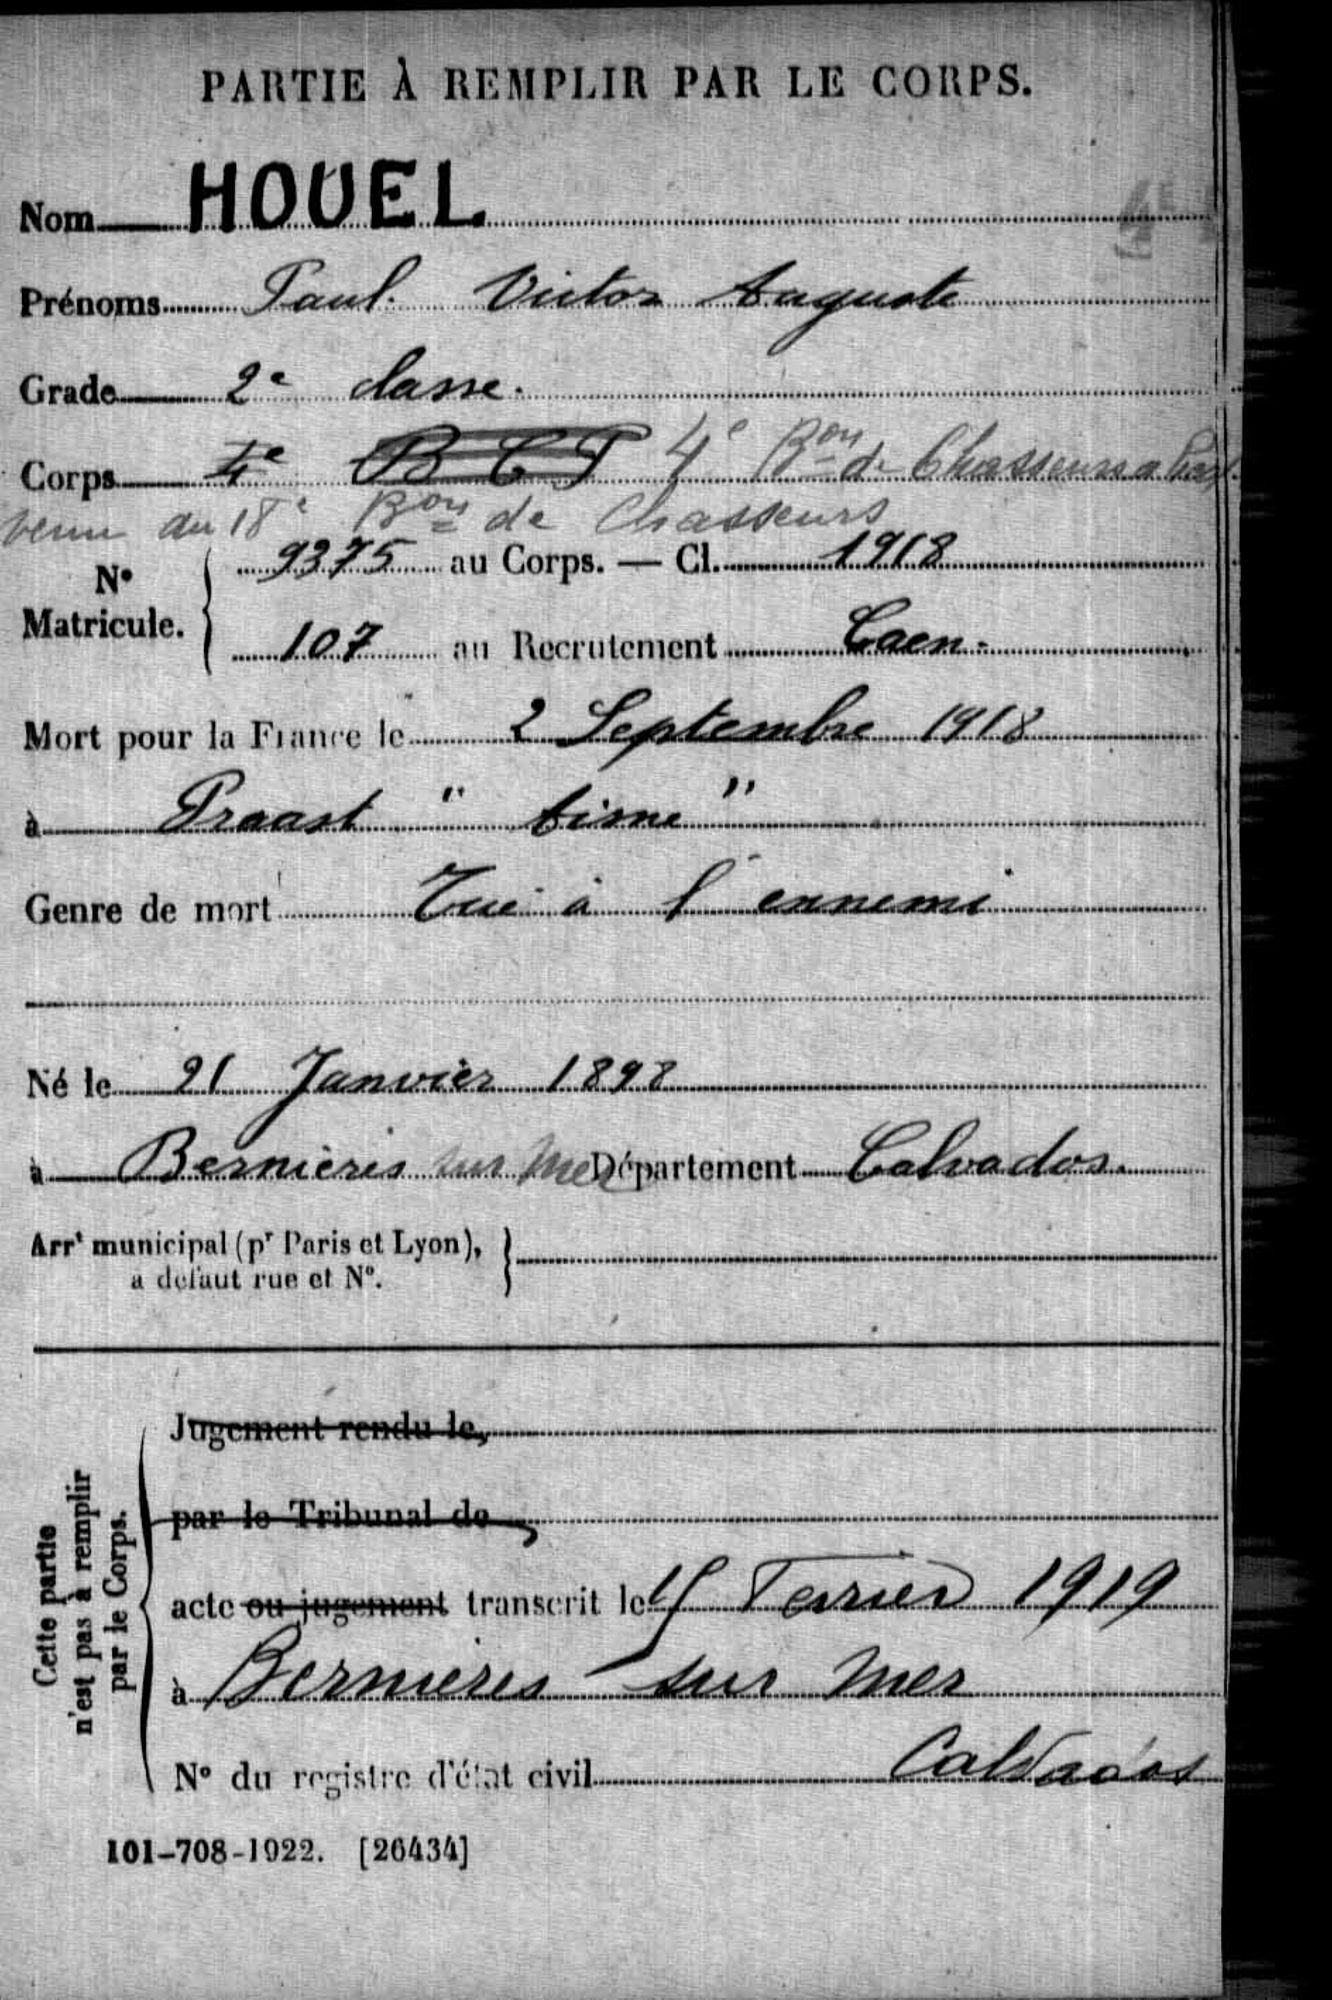 PARTIE À REMPLIR PAR LE CORPS.
Nom HOUEL
Prénoms Paul Victor Auguste
Grade 2e classe.
Corps 4e B C P 4e Bon de Chasseurs a
venu du 18e Bon de Chasseurs
No Matricule. 9375 au Corps. — Cl. 1918
107 au Recrutement Caen.
Mort pour la France le 2 Septembre 1918
à Praast " Aisne "
Genre de mort Tué à l'ennemi
Né le 21 Janvier 1898
à Bernières sur Mer Département Calvados.
Arrt municipal (pr Paris et Lyon),
a défaut rue et No.
Cette partie
n'est pas à remplir
par le Corps.
Jugement rendu le,
par le Tribunal de
acte ou jugement transcrit le 1919
à Bernières sur Mer
Calvados
No du registre d'état civil
101-708-1922. [26434]